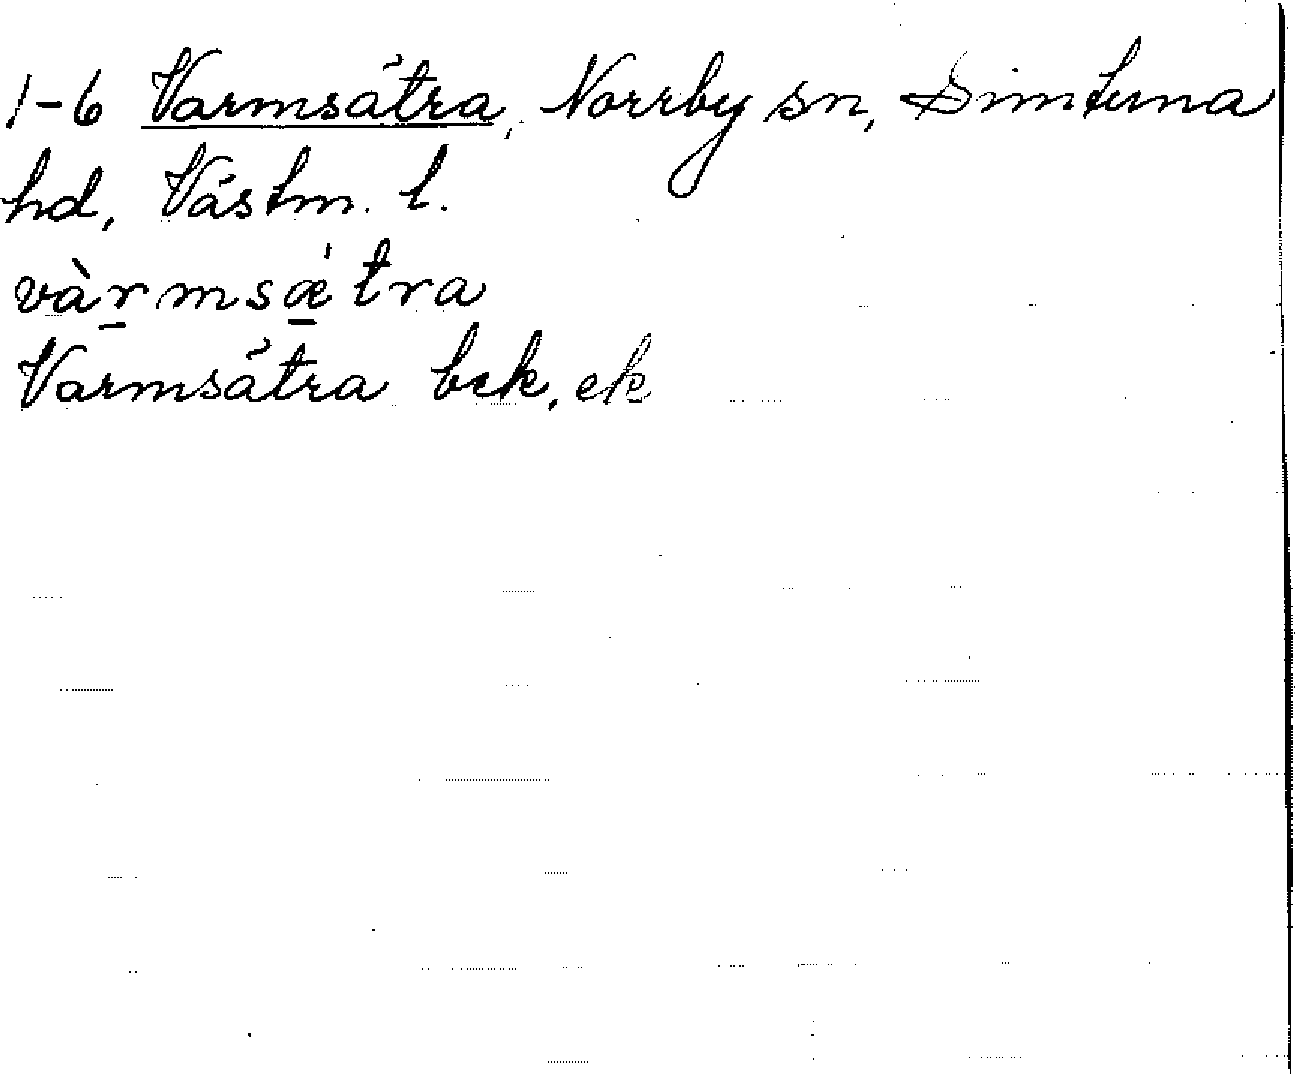 1-6 Varmsätra, Norrby sn, Simtuna
hd, Västm. l.
vàr̲msǽ̲tra
Varmsätra bek, ek